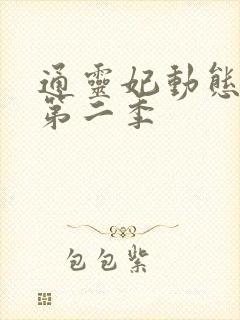 通靈妃動態
第二季
包包紫